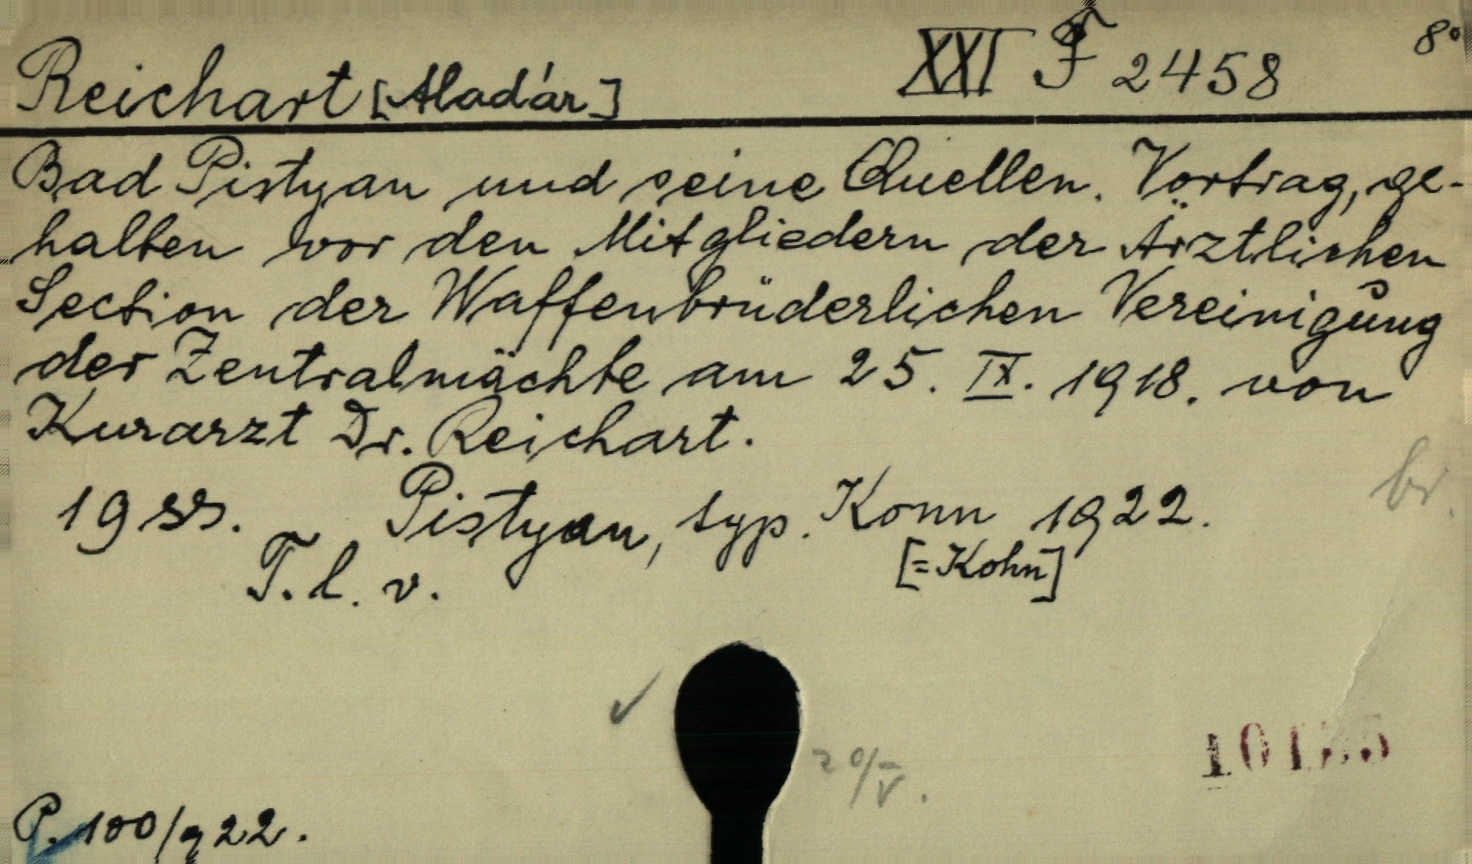 Reichart [Aladár] XXI F 2458 8°
Bad Pistyan und seine Quellen. Vortrag, ge-
halten vor den Mitgliedern der Ärztlichen
Section der Waffenbrüderlichen Vereinigung
der Zentralmächte am 25. IX. 1918. von
Kurarzt Dr. Reichart.
br.
19 ss. Pistyan, typ. Konn 1922.
[=Kohn]
T. l. v.
20/V.
P. 100/922.